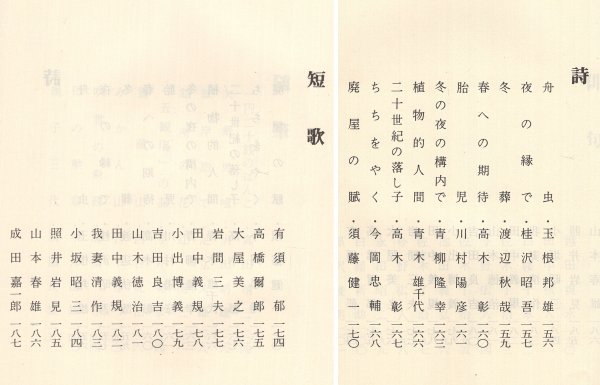 詩
舟虫・玉根邦雄一五六
夜の縁で・桂沢昭吾一五七
冬葬・渡辺秋哉一五九
春への期待・高木彰一六〇
胎児・川村陽彦一六一
冬の夜の構内で・青柳隆幸一六三
植物的人間・青木雄千代一六六
二十世紀の落し子・高木彰一六七
ちちをやく・今岡忠輔一六八
廃屋の賦・須藤健一一七〇
短歌
有須郁一七四
高橋爾郎一七五
大屋美之一七六
岩間三夫一七七
田中義規一七八
小出博義一七九
吉田良吉一八〇
山木徳治一八一
田中義規一八二
我妻清作一八三
小坂昭三一八四
照井岩見一八五
山本春雄一八六
成田嘉一郎一八七